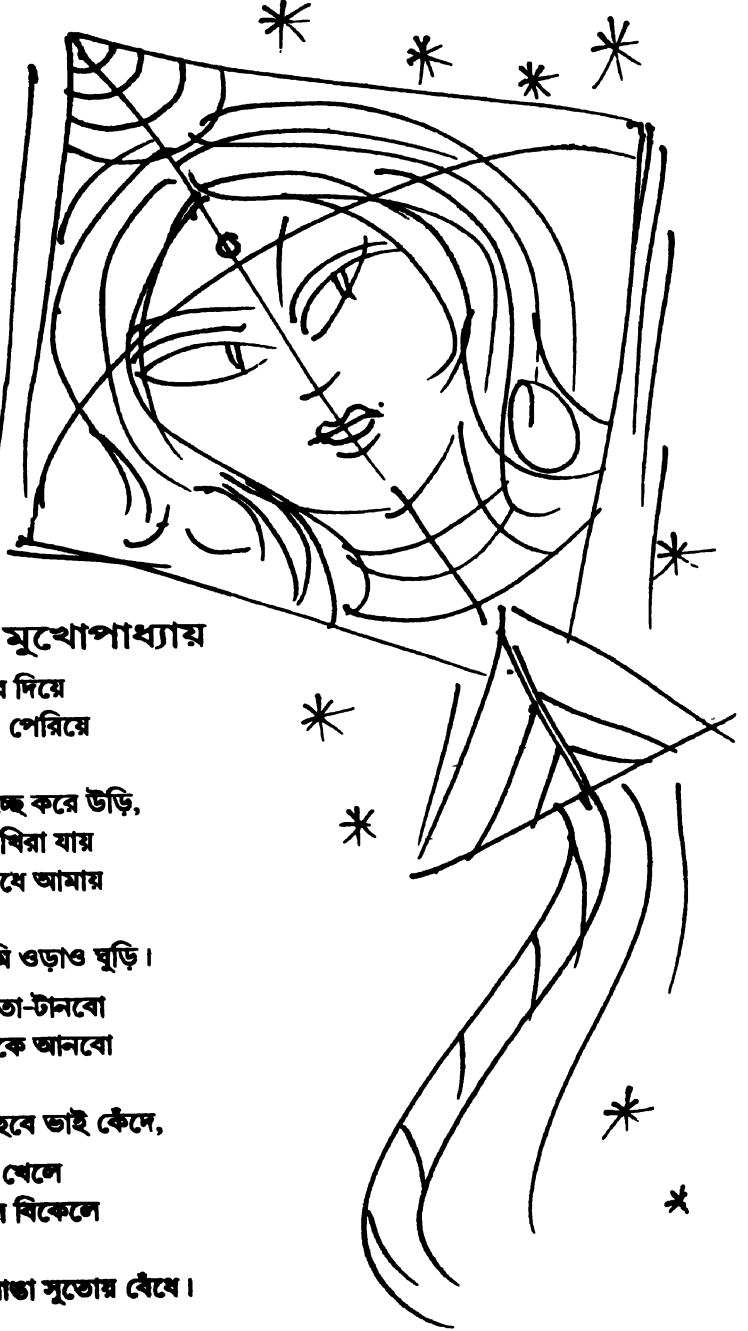 মুখোপাধ্যায়
দিয়ে
পেরিয়ে
করে উড়ি,
যায়
আমায়
ওড়াও ঘুড়ি।
টানবো
আনবো
ভাই কেঁদে,
খেলে
বিকেলে
সুতোয় বেঁধে।